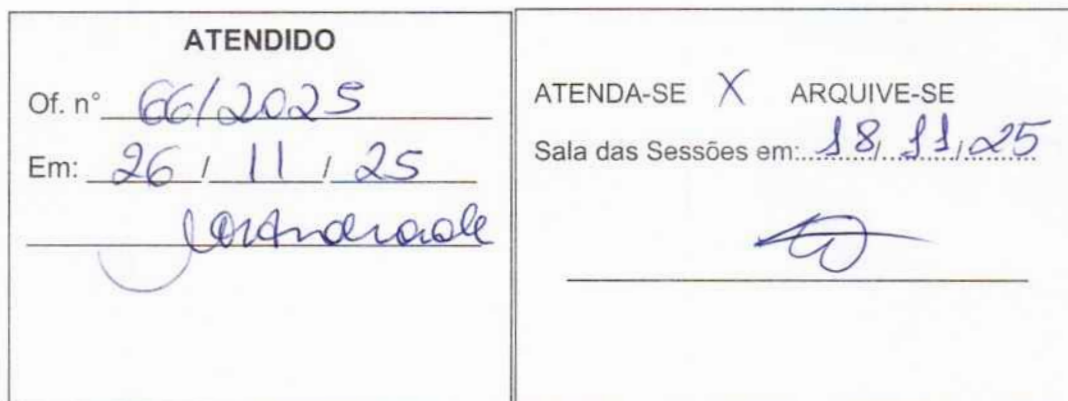 ATENDIDO
Of. n° 66/2025
Em: 26 / 11 / 25
ATENDA-SE X ARQUIVE-SE
Sala das Sessões em: 18, 11, 25